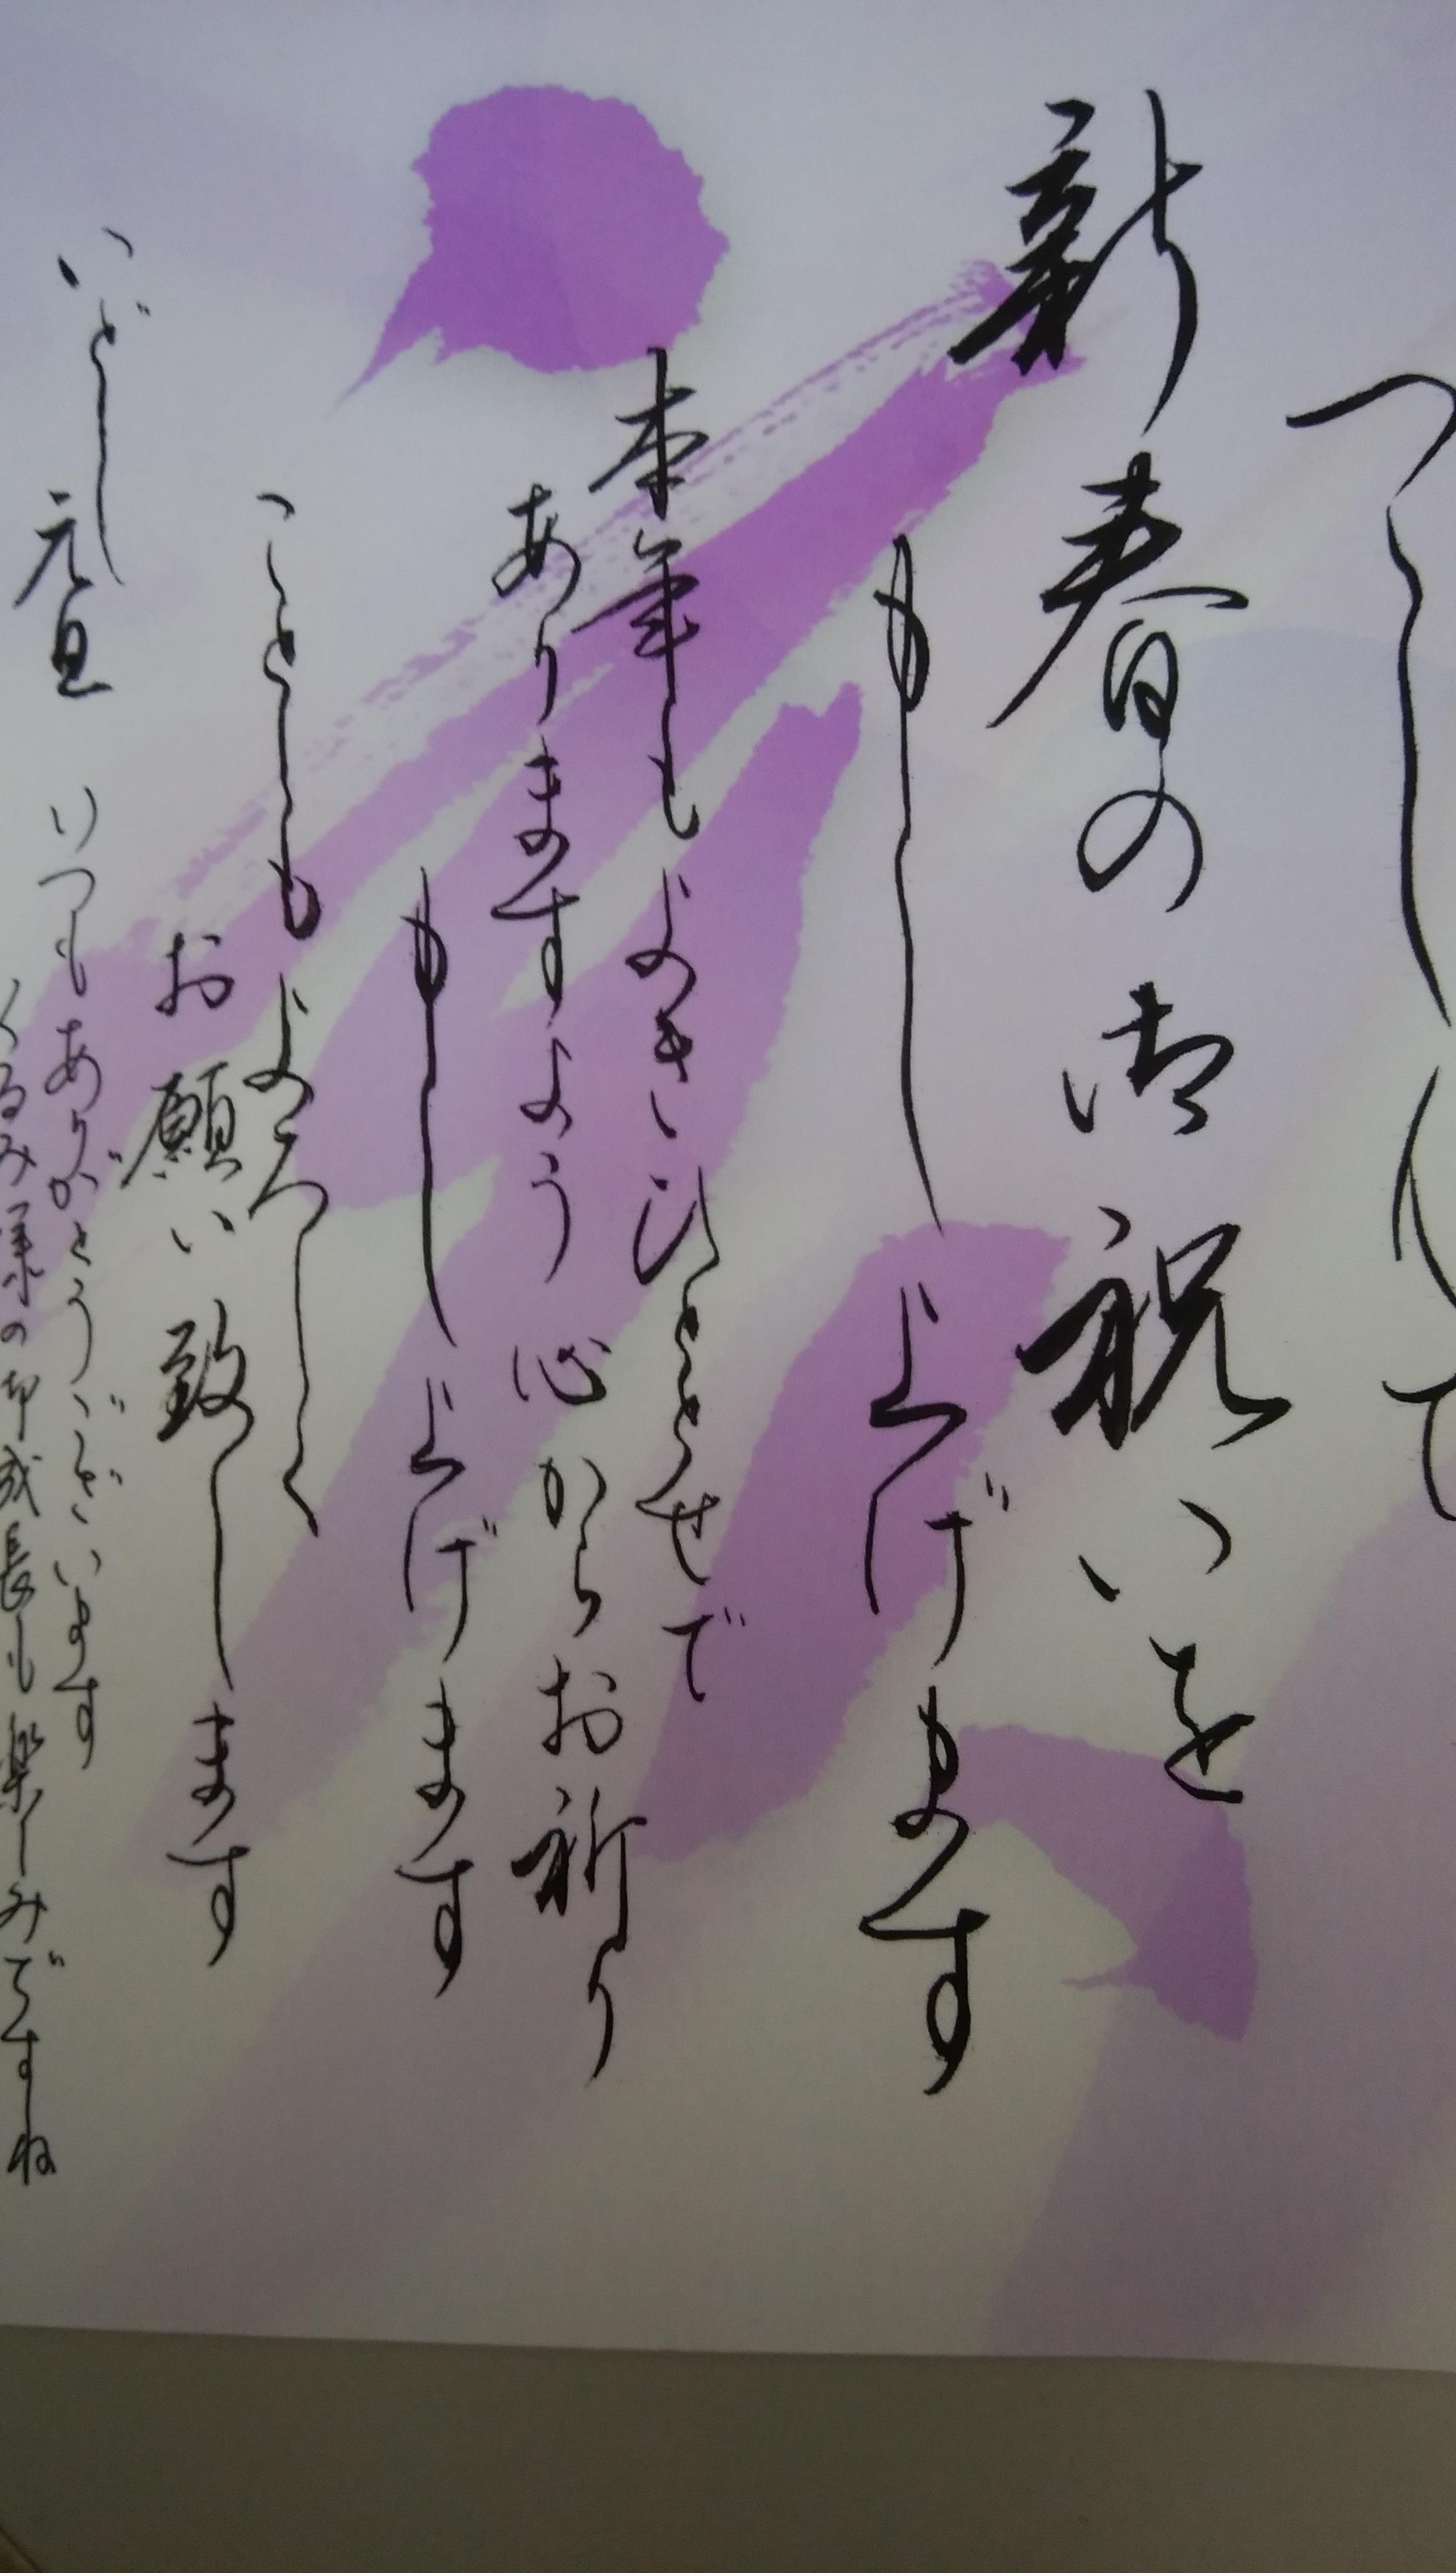 つゝしんて
新春の御祝いを
申し上げます
本年もよきひととせで
ありますよう心からお祈り
申し上げます
ことしもよろしく
お願い致します
いどし
元旦
いつもありがとうございます
くるみ様の御成長も楽しみですね